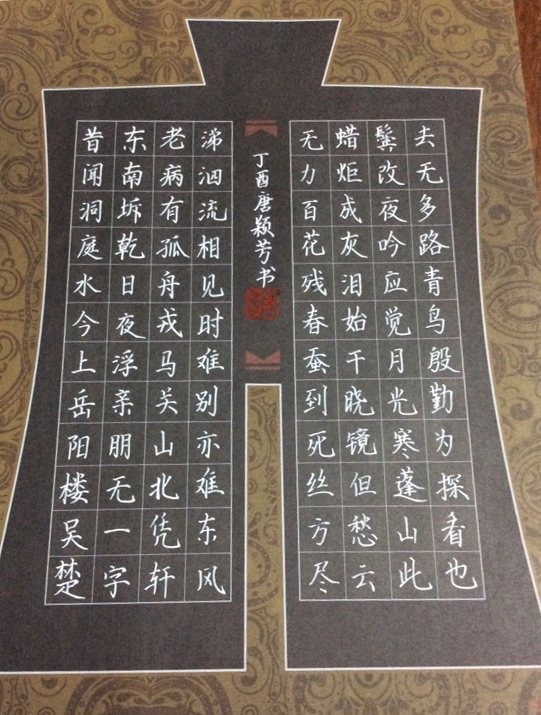 昔闻洞庭水今上岳阳楼吴楚
东南坼乾日夜浮亲朋无一字
老病有孤舟戎马关山北凭轩
涕泗流相见时难别亦难东风
无力百花残春蚕到死丝方尽
蜡炬成灰泪始干晓镜但愁云
鬓改夜吟应觉月光寒蓬山此
去无多路青鸟殷勤为探看也
丁酉唐颖芳书